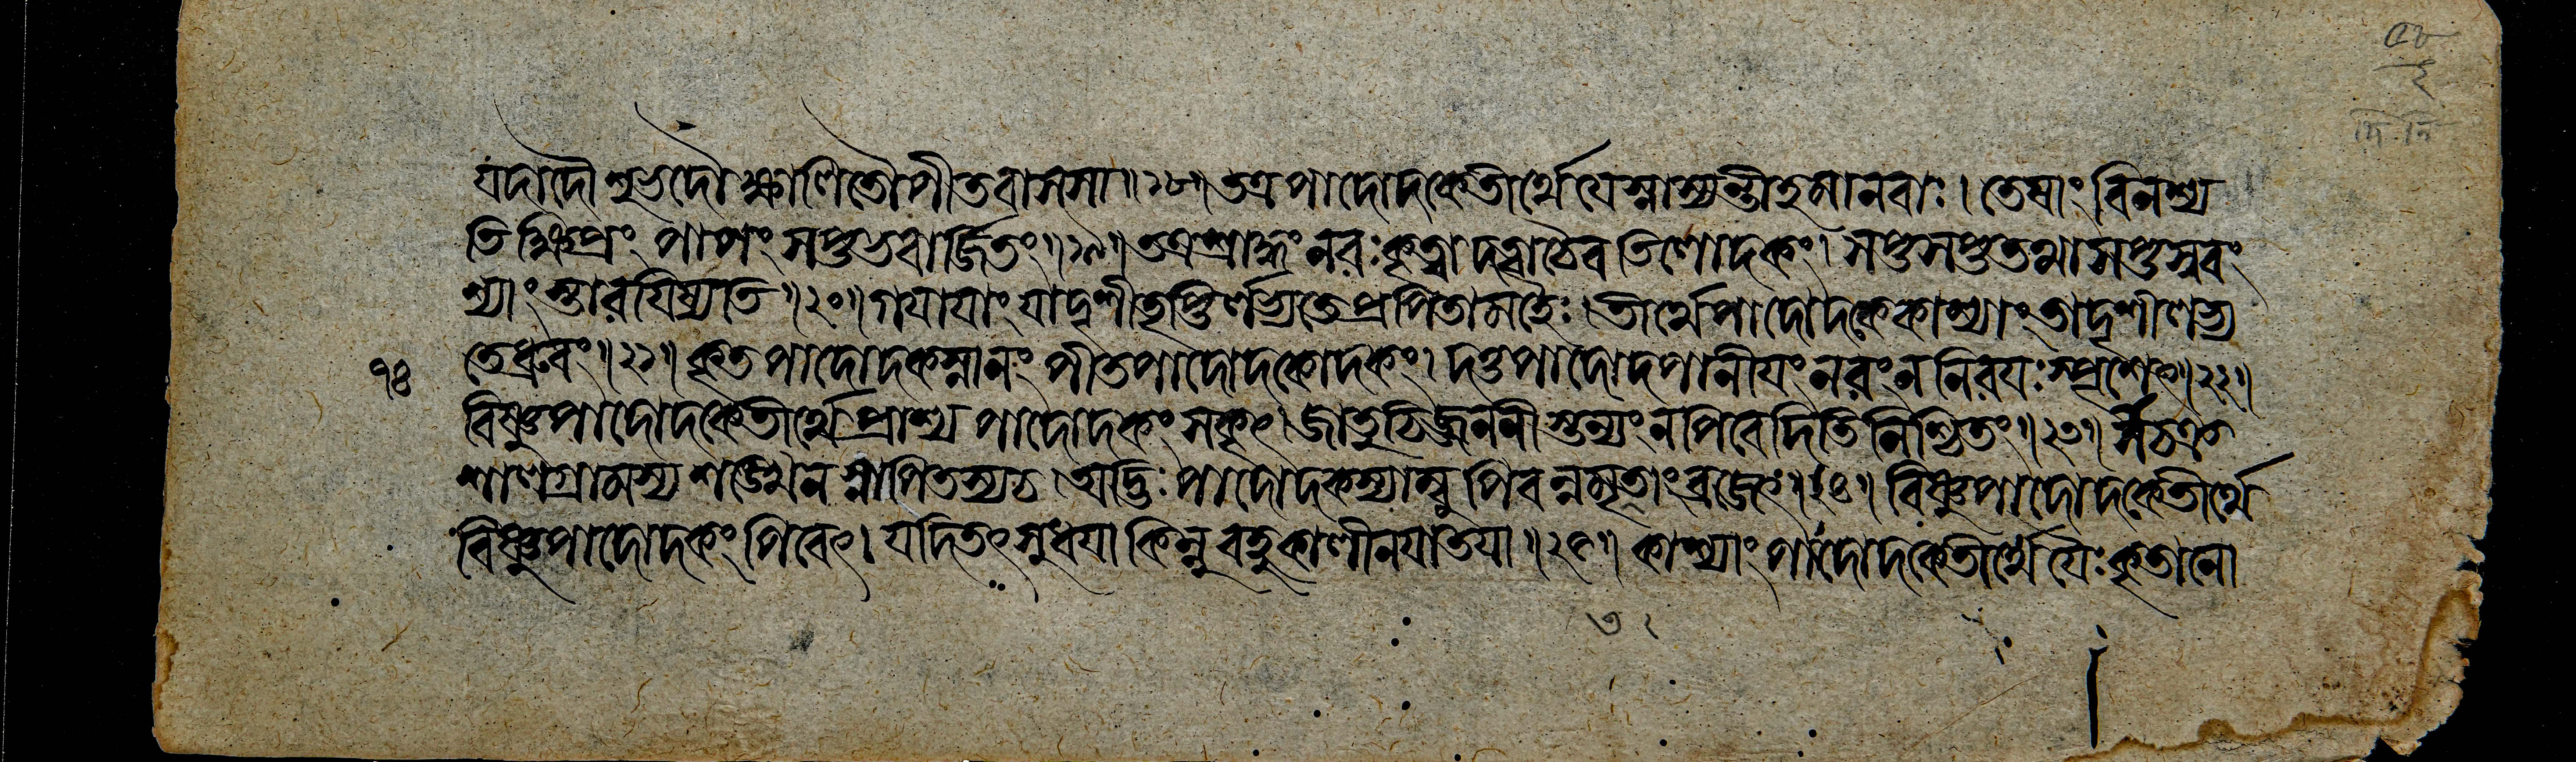 যদাদৌ শুভদৌ ক্ষালিতৌ পীতবাসসা॥১৮॥ তত্র পাদোদকে তীর্থে যে স্নাস্যন্তীহ মানবাঃ। তেষাং বিনশ্য
তি ক্ষিপ্রং পাপং সপ্তভবার্জিতং॥১৯॥ তত্র শ্রাদ্ধং নরঃ কৃত্বা দত্বা চৈব তিলোদকং। সপ্ত সপ্ত তথা সপ্ত স্ববং
শ্যাংস্তারযিষ্যতি॥২০॥ গযাযাং যাদৃশী তৃপ্তির্লভ্যতে প্রপিতামহৈঃ। তীর্থে পাদোদকে কাশ্যাং তাদৃশী লভ্য
তে ধ্রুবং॥২১॥ কৃতপাদোদকস্নানং পীতপাদোদকোদকং। দত্তপাদোদপানীযং নরং ন নিরযঃ স্পৃশেৎ॥২২॥
১৪
বিষ্ণুপাদোদকে তীর্থে প্রাশ্য পাদোদকং সকৃৎ। জাতুচিজ্জননীস্তন্যং ন পিবেদিতি নিশ্চিতং॥২৩॥ সচক্র
শালগ্রামস্য শঙ্খেন স্নাপিতস্য চ। অদ্ভিঃ পাদোদকস্যাম্বু পিবন্নমৃততাং ব্রজেৎ॥২৪॥ বিষ্ণুপাদোদকে তীর্থে
বিষ্ণুপাদোদকং পিবেৎ। যদি তৎ সুধযা কিন্নু বহুকালীনযাতযা॥২৫॥ কাশ্যাং পাদোদকে তীর্থে যৈঃ কৃতা নো